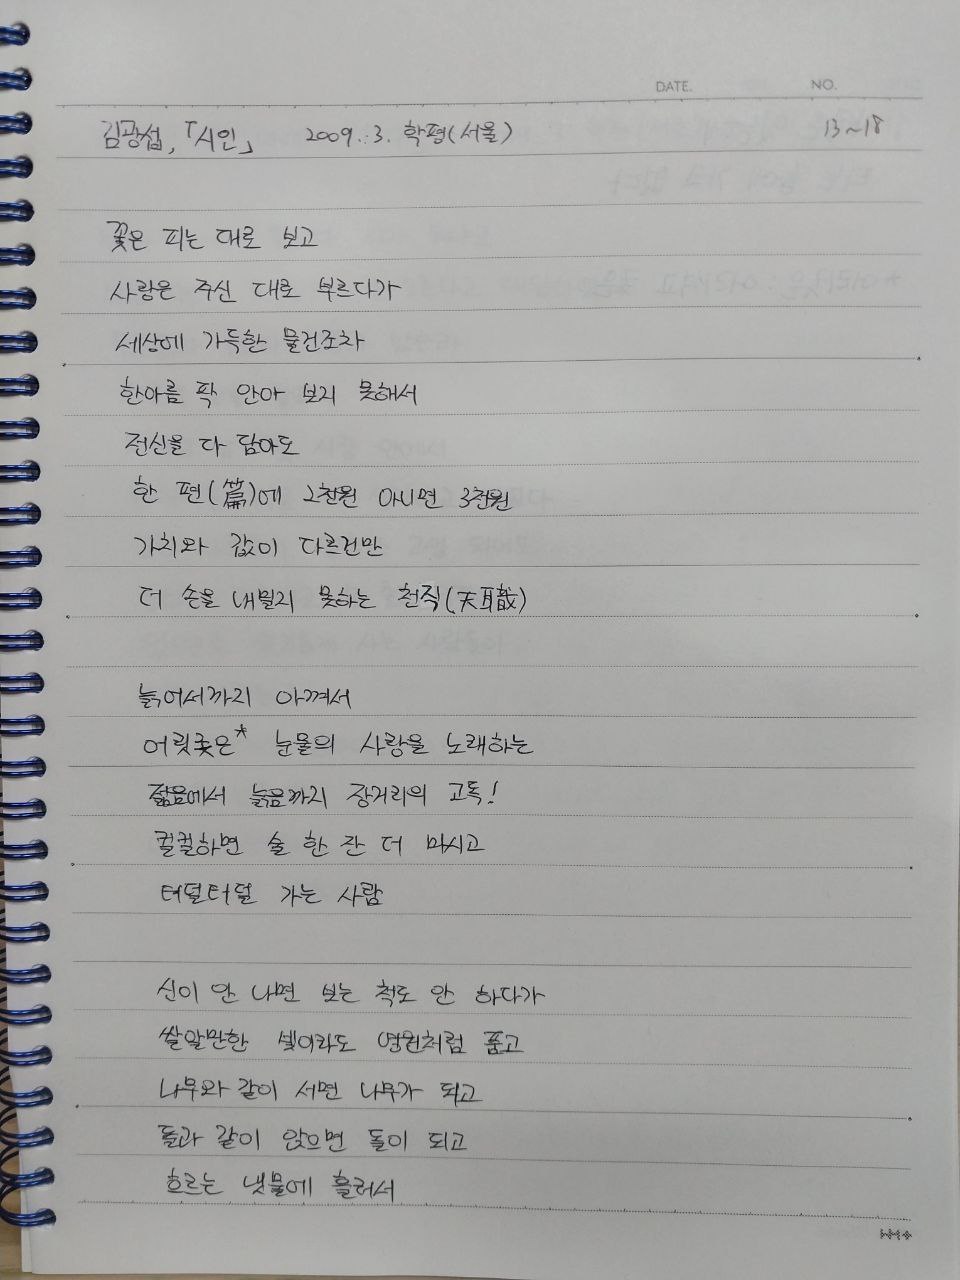 DATE. NO.
김광섭, 「시인」 2009. 3. 학평(서울) 13~18
꽃은 피는 대로 보고
사랑은 주신 대로 부르다가
세상에 가득한 물건조차
한아름 팍 안아 보지 못해서
전신을 다 담아도
한 편(篇)에 2천원 아니면 3천원
가치와 값이 다르건만
더 손을 내밀지 못하는 천직(天職)
늙어서까지 아껴서
어릿궂은* 눈물의 사랑을 노래하는
젊음에서 늙음까지 장거리의 고독!
컬컬하면 술 한 잔 더 마시고
터덜터덜 가는 사람
신이 안 나면 보는 척도 안 하다가
쌀알만한 빛이라도 영원처럼 품고
나무와 같이 서면 나무가 되고
돌과 같이 앉으면 돌이 되고
흐르는 냇물에 흘러서